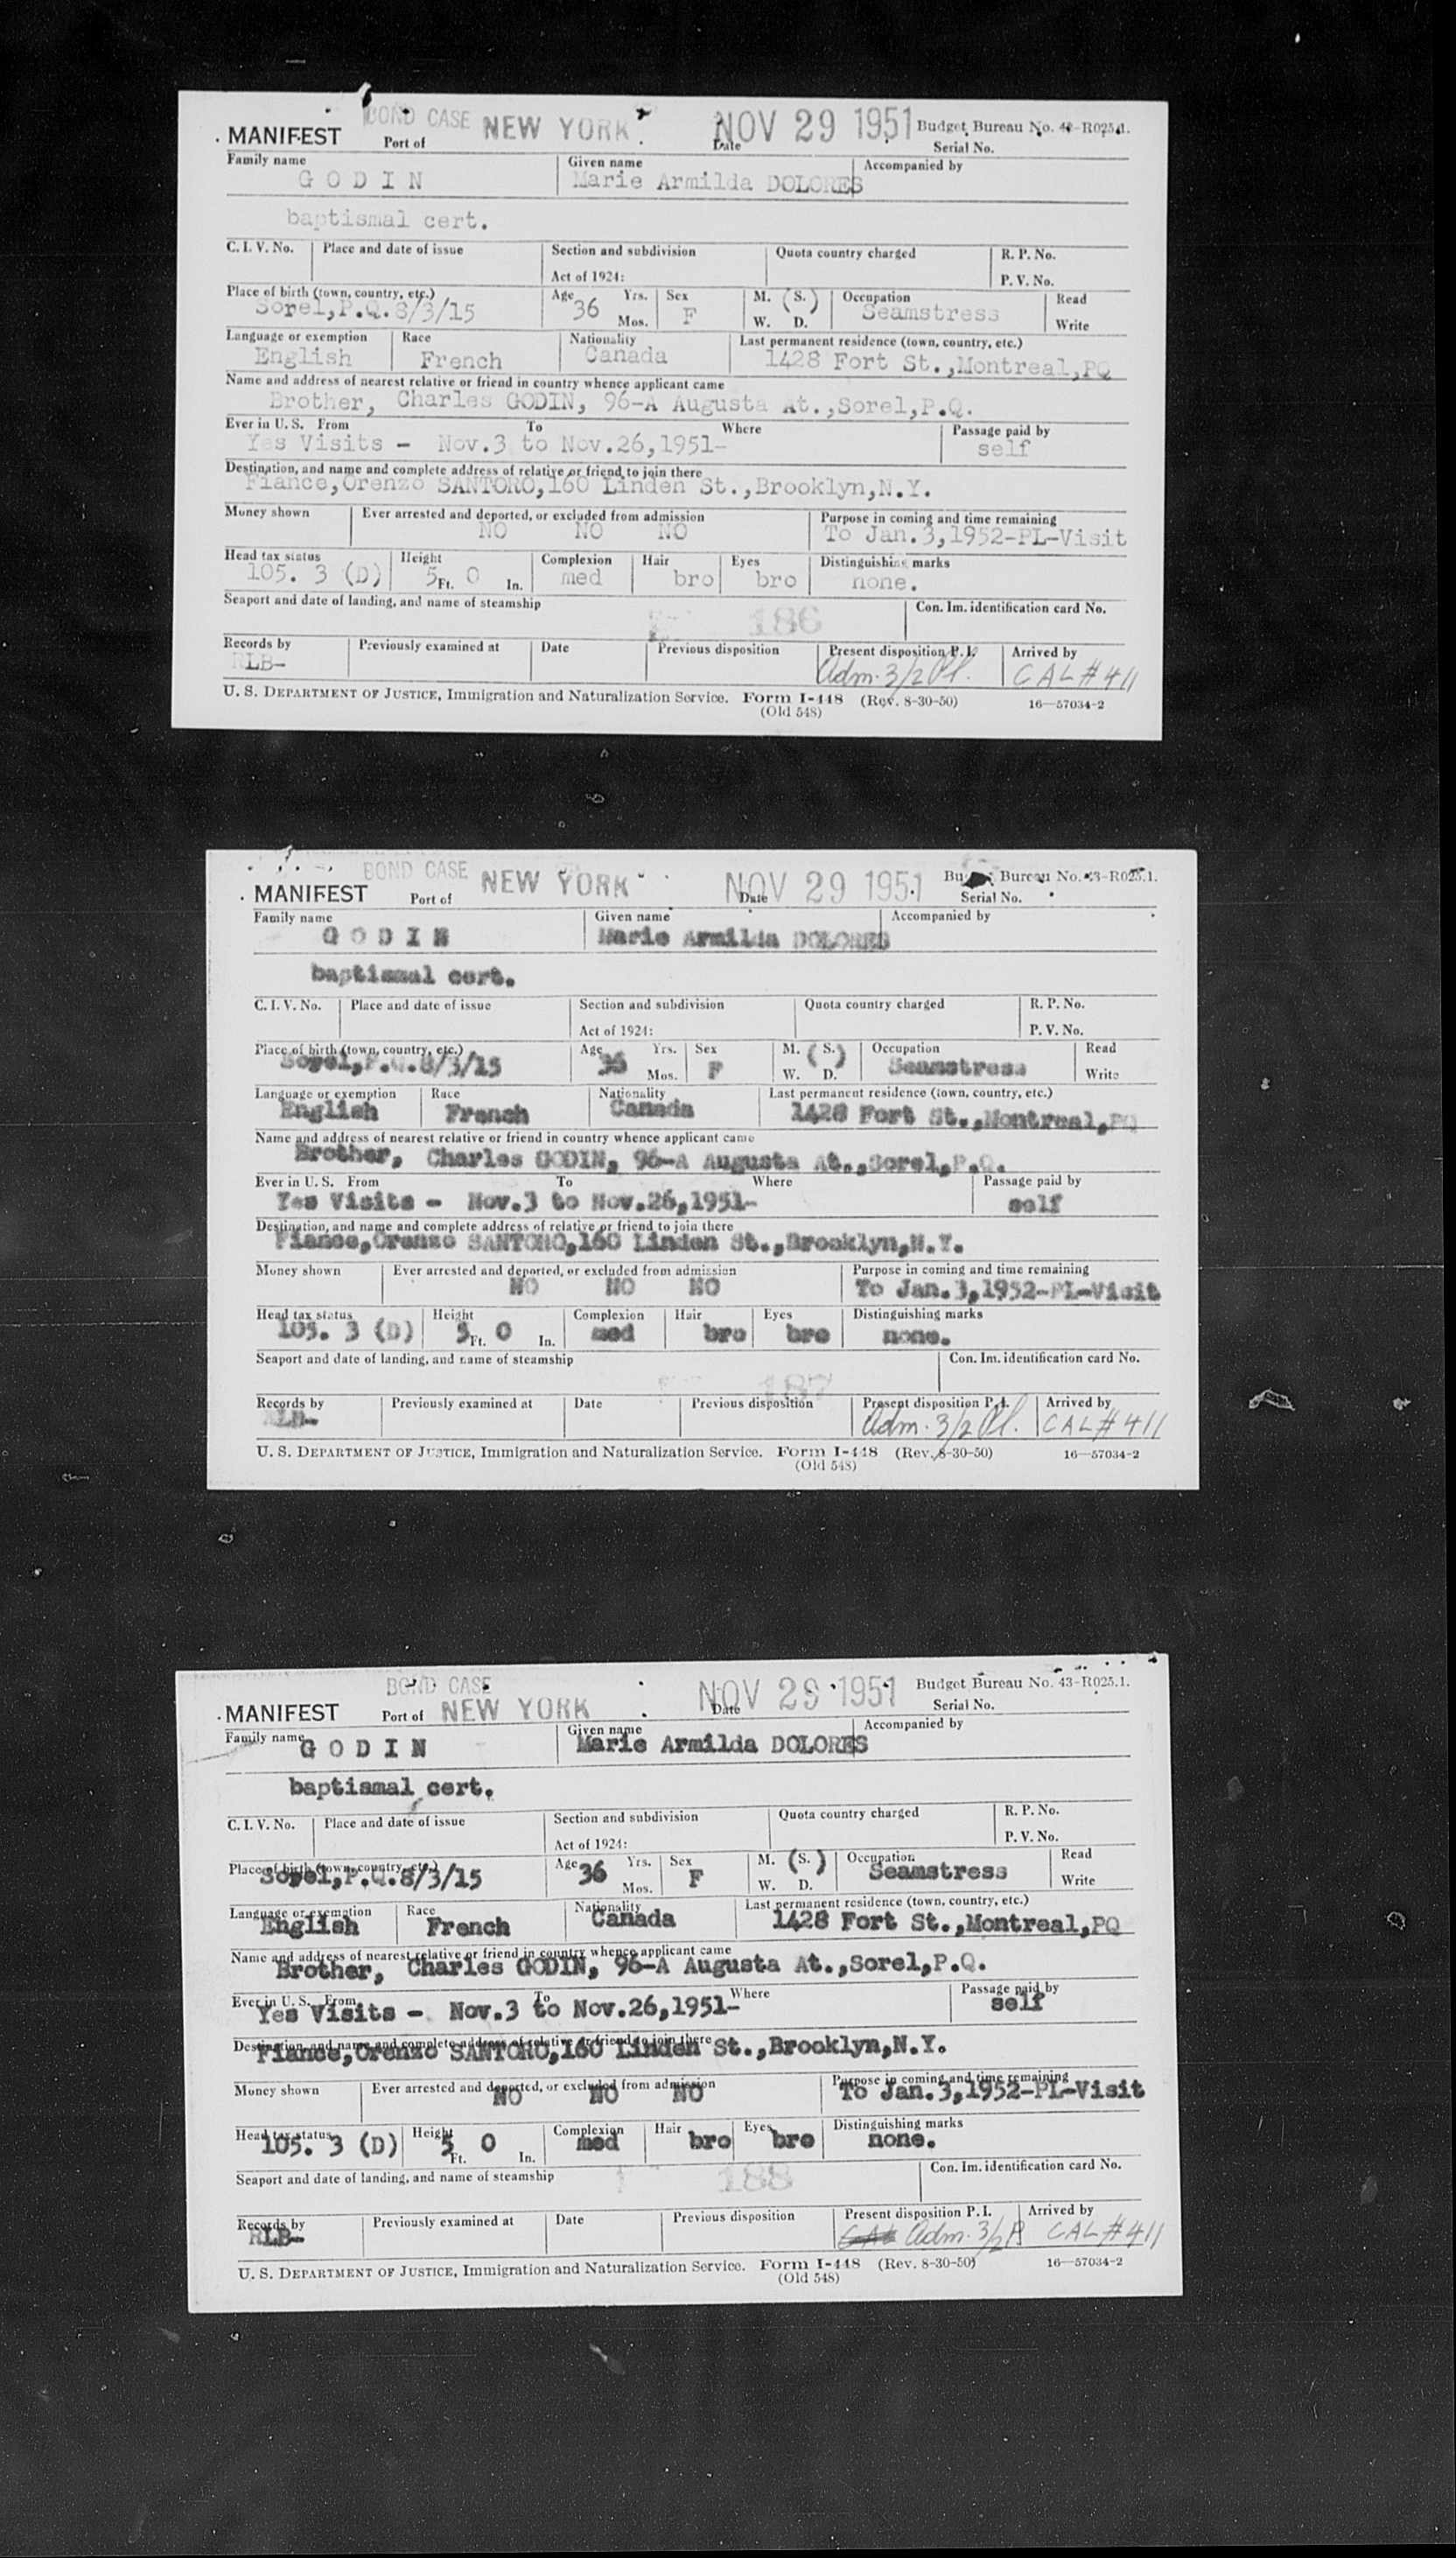 BOND CASE
MANIFEST Port of NEW YORK Date NOV 29 1951 Budget Bureau No. 43-R025.1.
Serial No.
Family name Given name Accompanied by
GODIN Marie Armilda DOLORES
baptismal cert.
C. I. V. No. Place and date of issue Section and subdivision Quota country charged R. P. No.
Act of 1924: P. V. No.
Place of birth (town, country, etc.) Age Yrs. Sex M. (S.) Occupation Read
Sorel,P.Q.8/3/15 36 Mos. F W. D. Seamstress Write
Language or exemption Race Nationality Last permanent residence (town, country, etc.)
English French Canada 1428 Fort St.,Montreal,PQ
Name and address of nearest relative or friend in country whence applicant came
Brother, Charles GODIN, 96-A Augusta At.,Sorel,P.Q.
Ever in U. S. From To Where Passage paid by
Yes Visits - Nov.3 to Nov.26,1951- self
Destination, and name and complete address of relative or friend to join there
Fiance,Orenzo SANTORO,160 Linden St.,Brooklyn,N.Y.
Money shown Ever arrested and deported, or excluded from admission Purpose in coming and time remaining
NO NO NO To Jan.3,1952-PL-Visit
Head tax status Height Complexion Hair Eyes Distinguishing marks
105. 3 (D) 5 Ft. 0 In. med bro bro none.
Seaport and date of landing, and name of steamship Con. Im. identification card No.
186
Records by Previously examined at Date Previous disposition Present disposition P. I. Arrived by
RLB- Adm. 3/2 Pl. CAL # 411
U. S. DEPARTMENT OF JUSTICE, Immigration and Naturalization Service. Form I-448 (Rev. 8-30-50) 16—57034-2
(Old 548)
BOND CASE
MANIFEST Port of NEW YORK Date NOV 29 1951 Bureau No. 43-R025.1.
Serial No.
Family name Given name Accompanied by
GODIN Marie Armilda DOLORES
baptismal cert.
C. I. V. No. Place and date of issue Section and subdivision Quota country charged R. P. No.
Act of 1924: P. V. No.
Place of birth (town, country, etc.) Age Yrs. Sex M. (S.) Occupation Read
Sorel,P.Q.8/3/15 36 Mos. F W. D. Seamstress Write
Language or exemption Race Nationality Last permanent residence (town, country, etc.)
English French Canada 1428 Fort St.,Montreal,PQ
Name and address of nearest relative or friend in country whence applicant came
Brother, Charles GODIN, 96-A Augusta At.,Sorel,P.Q.
Ever in U. S. From To Where Passage paid by
Yes Visits - Nov.3 to Nov.26,1951- self
Destination, and name and complete address of relative or friend to join there
Fiance,Orenzo SANTORO,160 Linden St.,Brooklyn,N.Y.
Money shown Ever arrested and deported, or excluded from admission Purpose in coming and time remaining
NO NO NO To Jan.3,1952-PL-Visit
Head tax status Height Complexion Hair Eyes Distinguishing marks
105. 3 (D) 5 Ft. 0 In. med bro bro none.
Seaport and date of landing, and name of steamship Con. Im. identification card No.
187
Records by Previously examined at Date Previous disposition Present disposition P. I. Arrived by
RLB- Adm. 3/2 Pl. CAL # 411
U. S. DEPARTMENT OF JUSTICE, Immigration and Naturalization Service. Form I-448 (Rev. 8-30-50) 16—57034-2
(Old 548)
BOND CASE
MANIFEST Port of NEW YORK Date NOV 29 1951 Budget Bureau No. 43-R025.1.
Serial No.
Family name Given name Accompanied by
GODIN Marie Armilda DOLORES
baptismal cert.
C. I. V. No. Place and date of issue Section and subdivision Quota country charged R. P. No.
Act of 1924: P. V. No.
Place of birth (town, country, etc.) Age Yrs. Sex M. (S.) Occupation Read
Sorel,P.Q.8/3/15 36 Mos. F W. D. Seamstress Write
Language or exemption Race Nationality Last permanent residence (town, country, etc.)
English French Canada 1428 Fort St.,Montreal,PQ
Name and address of nearest relative or friend in country whence applicant came
Brother, Charles GODIN, 96-A Augusta At.,Sorel,P.Q.
Ever in U. S. From To Where Passage paid by
Yes Visits - Nov.3 to Nov.26,1951- self
Destination, and name and complete address of relative or friend to join there
Fiance,Orenzo SANTORO,160 Linden St.,Brooklyn,N.Y.
Money shown Ever arrested and deported, or excluded from admission Purpose in coming and time remaining
NO NO NO To Jan.3,1952-PL-Visit
Head tax status Height Complexion Hair Eyes Distinguishing marks
105. 3 (D) 5 Ft. 0 In. med bro bro none.
Seaport and date of landing, and name of steamship Con. Im. identification card No.
188
Records by Previously examined at Date Previous disposition Present disposition P. I. Arrived by
RLB- Adm. 3/2 P CAL # 411
U. S. DEPARTMENT OF JUSTICE, Immigration and Naturalization Service. Form I-448 (Rev. 8-30-50) 16—57034-2
(Old 548)